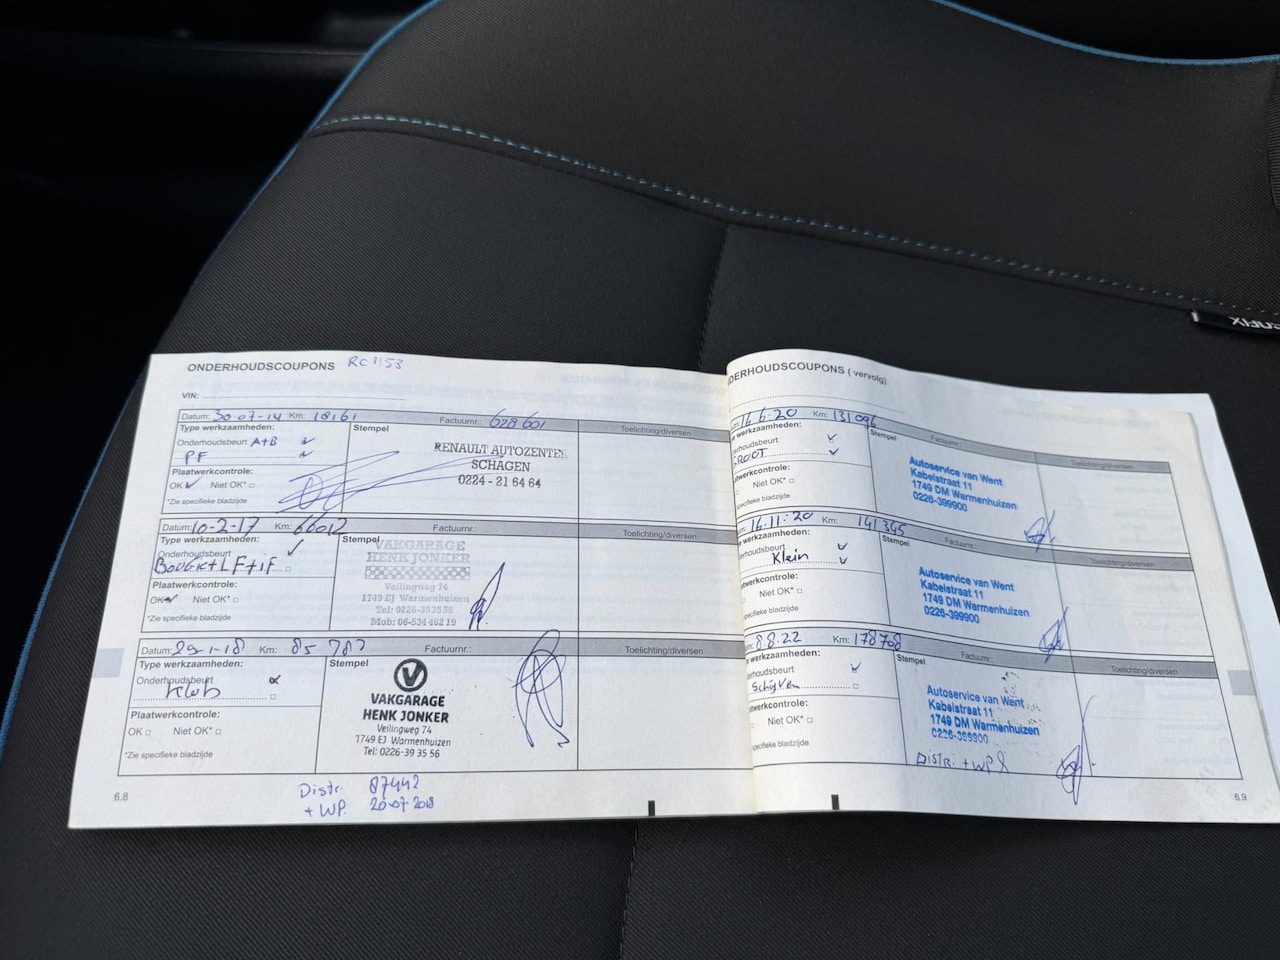 ONDERHOUDSCOUPONS
VIN:
Datum: 30-07-14 Km: 18161 Factuurnr.: 628601 Toelichting/diversen
Type werkzaamheden:
Onderhoudsbeurt A+B
PF
Plaatwerkcontrole:
OK Niet OK*
*Zie specifieke bladzijde
Stempel
RENAULT AUTOZENTER
SCHAGEN
0224 - 21 64 64
Datum: 10-2-17 Km: 66012 Factuurnr.: Toelichting/diversen
Type werkzaamheden:
Onderhoudsbeurt
Bougie+LF+iF
Plaatwerkcontrole:
OK Niet OK*
*Zie specifieke bladzijde
Stempel
VAKGARAGE
HENK JONKER
Veilingweg 74
1749 EJ Warmenhuizen
Tel: 0226-393556
Mob: 06-534 462 19
Datum: 29-1-18 Km: 85 787 Factuurnr.: Toelichting/diversen
Type werkzaamheden:
Onderhoudsbeurt
Plaatwerkcontrole:
OK Niet OK*
*Zie specifieke bladzijde
Stempel
VAKGARAGE
HENK JONKER
Veilingweg 74
1749 EJ Warmenhuizen
Tel: 0226-39 35 56
Distr. 87442
+ WP. 20-07-2018
6.8
NDERHOUDSCOUPONS ( vervolg)
16.6.20 Km: 131096 Factuurnr.: Toelichting/diversen
werkzaamheden:
derhoudsbeurt
GROOT
atwerkcontrole:
Niet OK*
specifieke bladzijde
Stempel
Autoservice van Went
Kabelstraat 11
1749 DM Warmenhuizen
0226-399900
16.11.20 Km: 141345 Factuurnr.: Toelichting/diversen
werkzaamheden:
derhoudsbeurt
Klein
werkcontrole:
Niet OK*
specifieke bladzijde
Stempel
Autoservice van Went
Kabelstraat 11
1749 DM Warmenhuizen
0226-399900
8.8.22 Km: 178708 Factuurnr.: Toelichting/diversen
werkzaamheden:
erhoudsbeurt
Schijven
werkcontrole:
Niet OK*
specifieke bladzijde
Stempel
Autoservice van Went
Kabelstraat 11
1749 DM Warmenhuizen
0226-399900
Distr. + WP
6.9